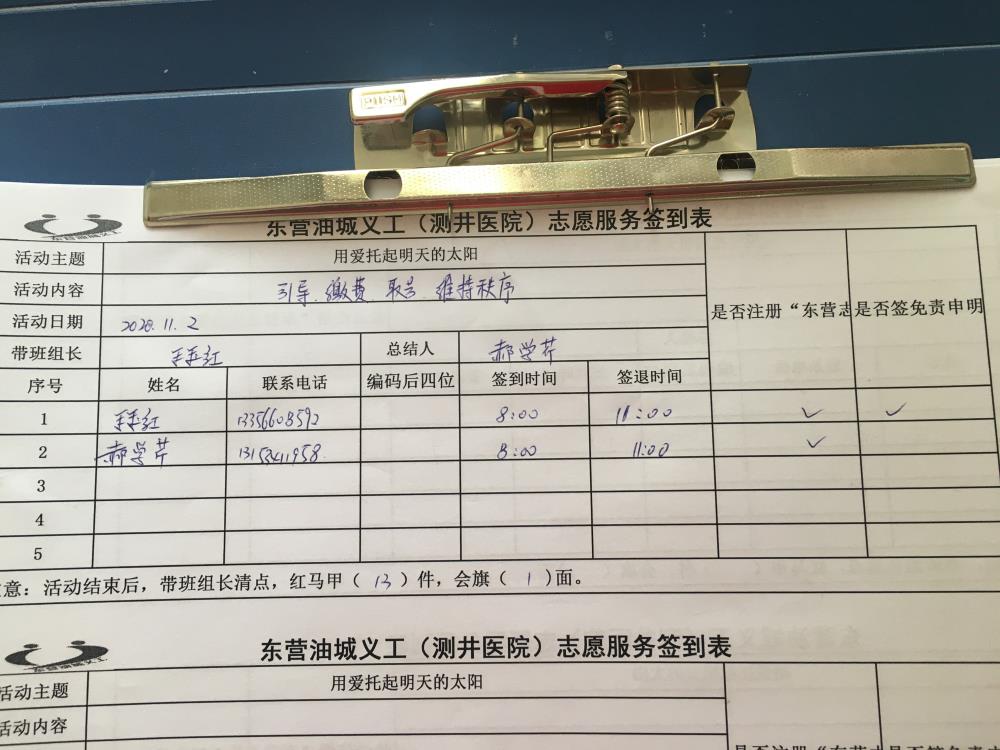 PUSH
东营油城义工(测井医院)志愿服务签到表
东营油城义工
活动主题 用爱托起明天的太阳
活动内容 引导、缴费 取号、维持秩序
是否注册“东营志 是否签免责申明
活动日期 2020.11.2
带班组长 总结人 郝学芹
序号 姓名 联系电话 编码后四位 签到时间 签退时间
1 13356608592 8:00 11:00 ✓ ✓
2 郝学芹 8:00 11:00 ✓
3
4
5
意:活动结束后,带班组长清点,红马甲(13)件,会旗(1)面。
东营油城义工(测井医院)志愿服务签到表
东营油城义工
活动主题 用爱托起明天的太阳
活动内容